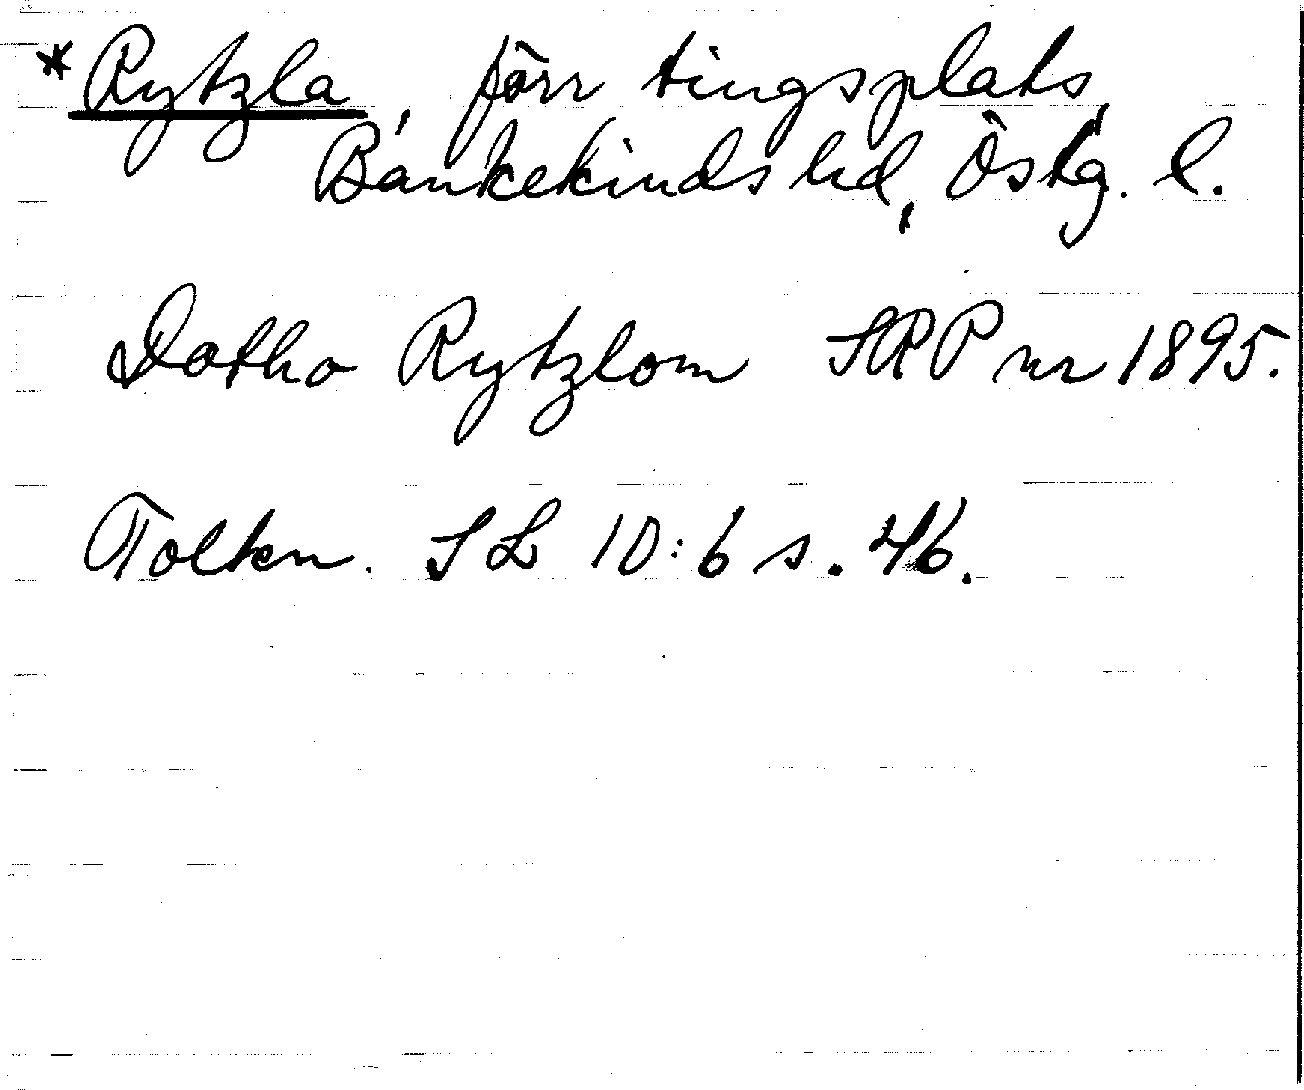 * Rytzla, förr tingsplats,
Bankekinds hd, Östg. l.
Datho Rytzlom SRP nr 1895.
Tolkn. SL 10:6 s. 46.